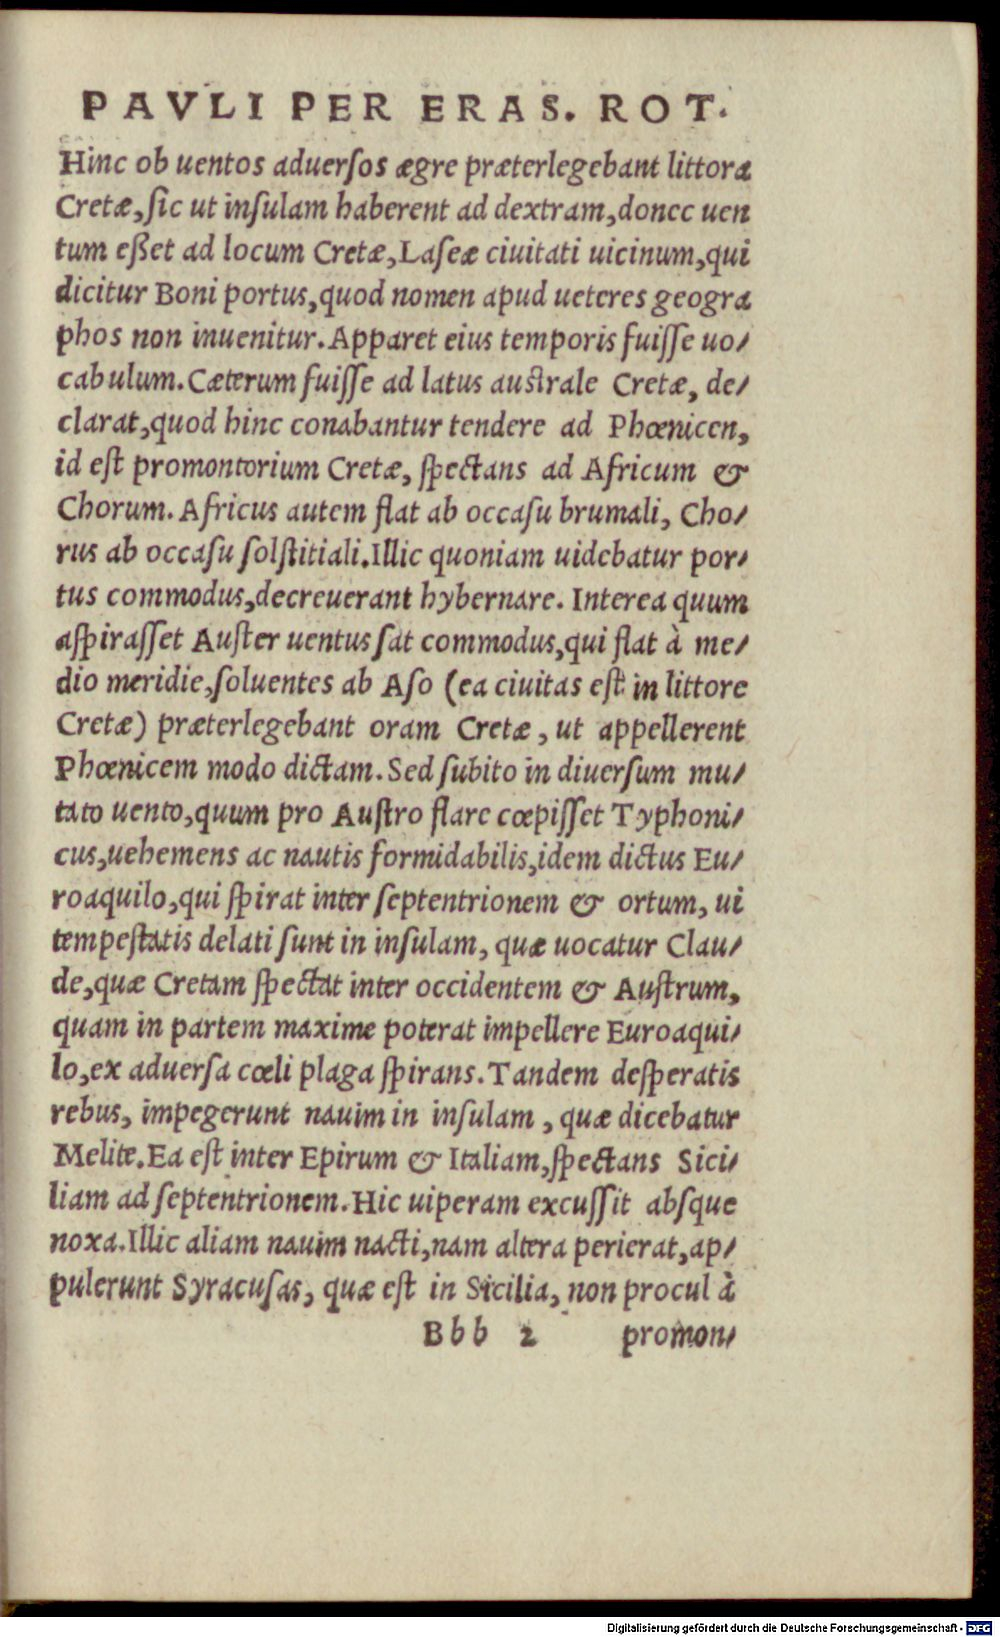 PAVLI PER ERAS. ROT.
Hinc ob uentos aduersos ægre præterlegebant littora
Cretæ, sic ut insulam haberent ad dextram, donec uen
tum eßet ad locum Cretæ, Laseæ ciuitati uicinum, qui
dicitur Boni portus, quod nomen apud ueteres geogra
phos non inuenitur. Apparet eius temporis fuisse uo/
cabulum. Cæterum fuisse ad latus australe Cretæ, de/
clarat, quod hinc conabantur tendere ad Phœnicen,
id est promontorium Cretæ, spectans ad Africum &
Chorum. Africus autem flat ab occasu brumali, Cho/
rus ab occasu solstitiali. Illic quoniam uidebatur por/
tus commodus, decreuerant hybernare. Interea quum
aspirasset Auster uentus sat commodus, qui flat à me/
dio meridie, soluentes ab Aso (ea ciuitas est in littore
Cretæ) præterlegebant oram Cretæ, ut appellerent
Phœnicem modo dictam. Sed subito in diuersum mu/
tato uento, quum pro Austro flare cœpisset Typhoni/
cus, uehemens ac nautis formidabilis, idem dictus Eu/
roaquilo, qui spirat inter septentrionem & ortum, ui
tempestatis delati sunt in insulam, quæ uocatur Clau/
de, quæ Cretam spectat inter occidentem & Austrum,
quam in partem maxime poterat impellere Euroaqui/
lo, ex aduersa cœli plaga spirans. Tandem desperatis
rebus, impegerunt nauim in insulam, quæ dicebatur
Melite. Ea est inter Epirum & Italiam, spectans Sici/
liam ad septentrionem. Hic uiperam excussit absque
noxa. Illic aliam nauim nacti, nam altera perierat, ap/
pulerunt Syracusas, quæ est in Sicilia, non procul à
Bbb 2 promon/
Digitalisierung gefördert durch die Deutsche Forschungsgemeinschaft - DFG